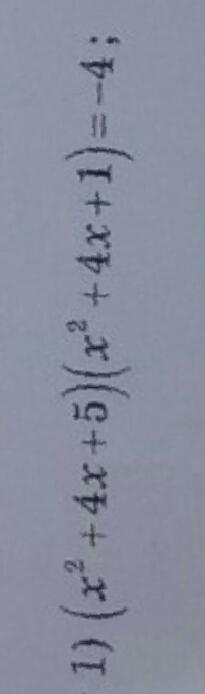 1) (x² + 4x + 5)(x² + 4x + 1) = -4;